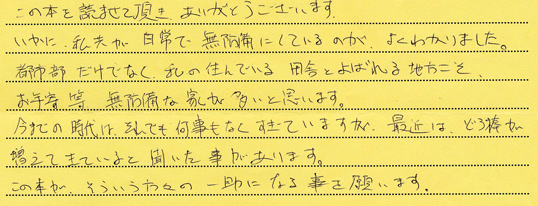 この本を読ませて頂き ありがとうございます。
いかに、私夫が 日常で 無防備にしているのが、よくわかりました。
都市部だけでなく、私の住んでいる 田舎とよばれる地方こそ、
お年寄 等、無防備な家が 多いと思います。
今までの時代は、それでも 何事もなく すぎていますが、最近は、どろ棒が
増えてきていると 聞いた 事があります。
この本が、そういう方々の 一助に なる 事を 願います。